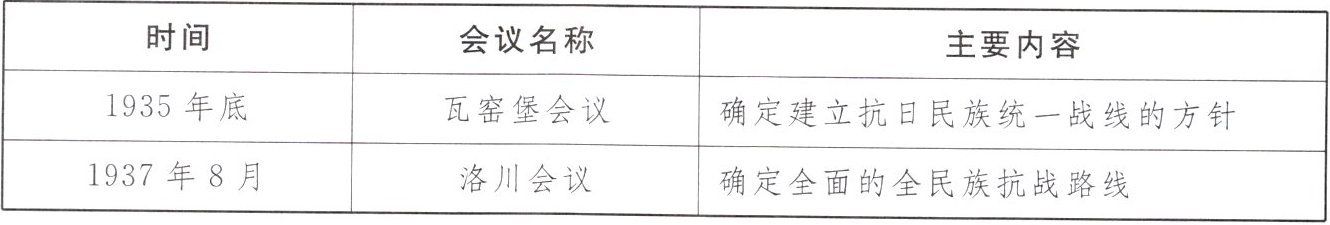 时间 会议名称 主要内容
1935年底 瓦窑堡会议 确定建立抗日民族统一战线的方针
1937年8月 洛川会议 确定全面的全民族抗战路线